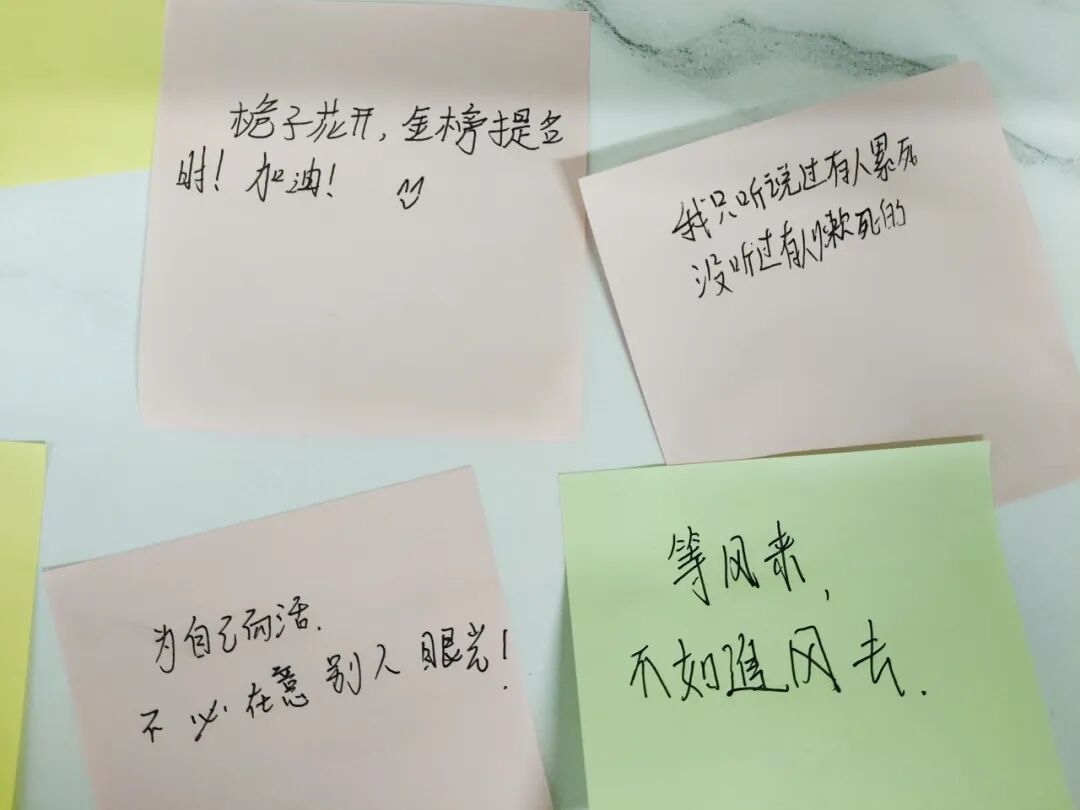 栀子花开,金榜提名
时!加油!
我只听说过有人累死
没听过有人懒死的
为自己而活.
不必在意别人眼光!
等风来,
不如追风去.